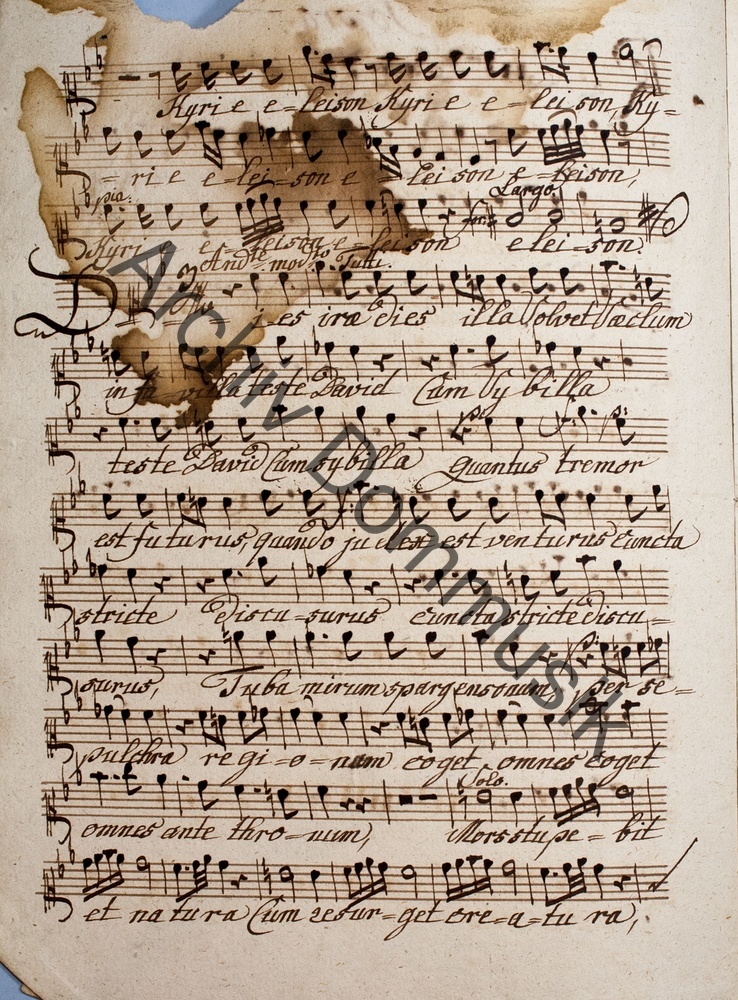 Kyri e e=leison Kyri e e=lei son, Ky=
=ri e e=lei=son e lei son e=leison,
pia. Largo
Kyri e e=leison e=lei son elei=son.
Andte modto Tutti.
Dies iræ dies illa Solvet Sæclum
in villa teste David Cum Sy billa
teste David Cum sybilla quantus tremor
est futurus, quando judex est venturus Cuncta
stricte discu=surus cuncta stricte discu=
surus, Tuba mirum spargens onum, per se=
pulchra regi=o=num coget omnes coget
Solo.
omnes ante thro=num, Mors stupe=bit
et natura Cum resur=get cre=a=tu ra,
Archiv Dommusik